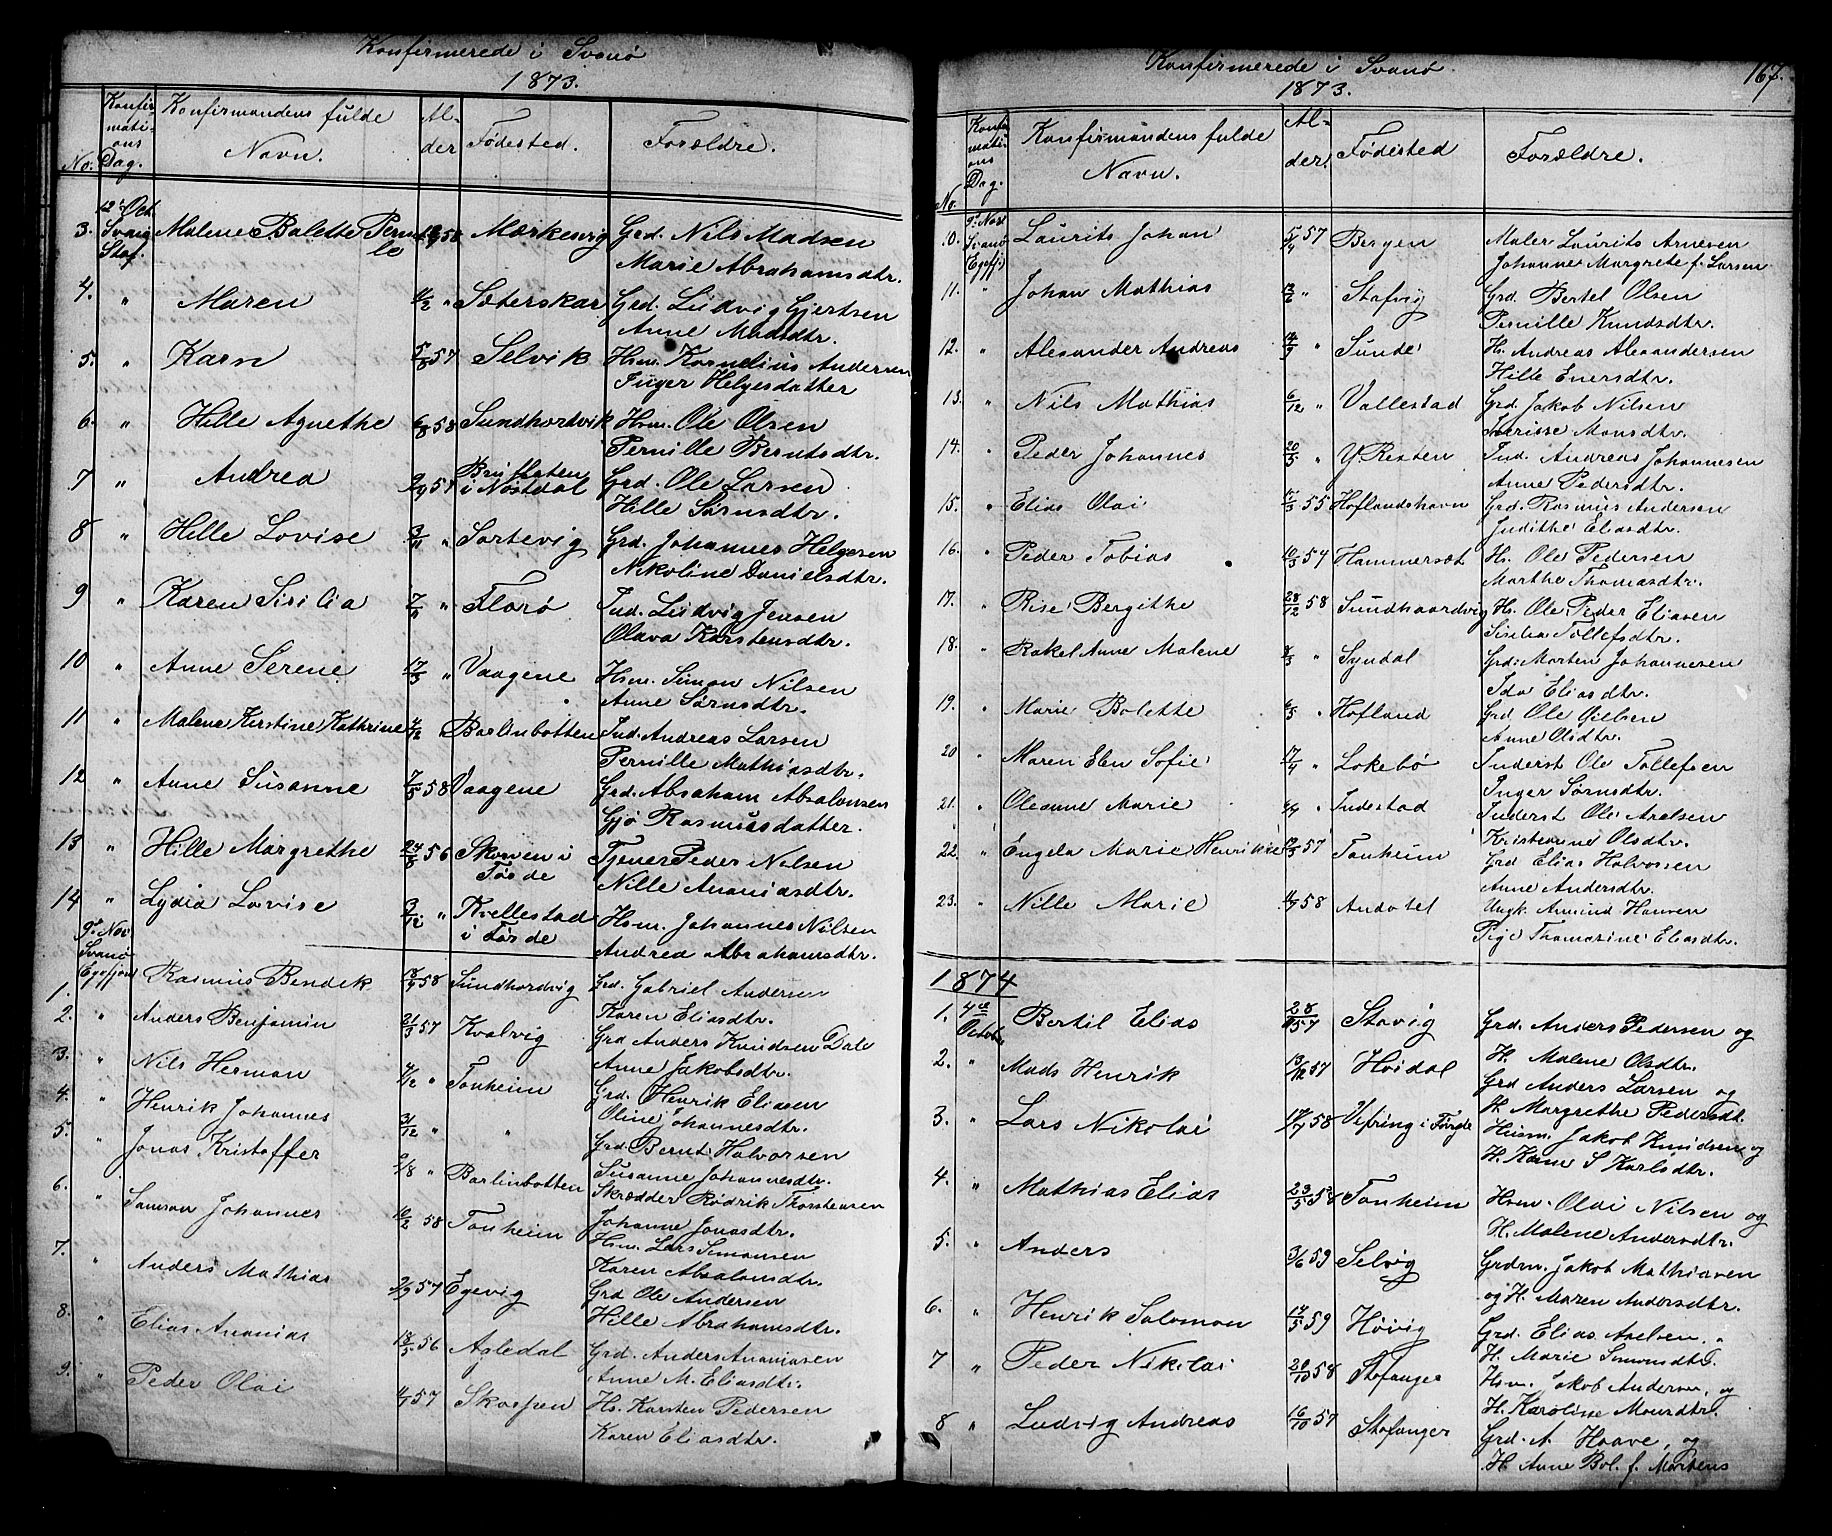 Konfirmerede i Svanø
1873.
No. Konfirmations Dag. Konfirmandens fulde Navn. Alder Fødested. Forældre.
12te Oct.
Svanø
Staf.
3. Malene Bolette Pernille 58 Mærkesvig Grd. Nils Madsen
Marie Abrahamsdtr.
4. " Maren " Sæterskar Grd. Ludvig Gjertsen
Anne Madsdtr.
5. " Karn 57 Selvik Hsm. Kornelius Andersen
Inger Helgesdatter
6. " Hille Agnethe 6/8 58 Sundhordvik Hsm. Ole Olsen
Pernille Berntsdtr.
7 " Andrea 57 i Nøstdal Grd. Ole Larsen
Hille Sørnsdtr.
8 " Hille Lovise " Sortevig Grd. Johannes Helgesen
Nikoline Danielsdtr.
9 " Karen Sisilia " Florø Ind. Ludvig Jensen
Olava Karstensdtr.
10 " Anne Serene 17/3 " Vaagene Hsm. Simon Nilsen
Anne Sørnsdtr.
11 " Malene Kirstine Kathrine " Barlinbotten Ind. Andreas Larsen
Pernille Mathiasdtr.
12 " Anne Susanne 58 Vaagene Grd. Absaham Absalonsen
Gjø Rasmusdatter.
13 " Hille Margrethe 56 Skorven i Førde Tjener Peder Nilsen
Nille Ananiasdtr.
14 " Lydia Lovise " Kvellestad i Førde Hsm. Johannes Nilsen
Andrea Abrahamsdtr.
9de Nov.
Svanø
Egefjord
1. Rasmus Bendik 58 Sundhordvig Grd. Gabriel Andersen
Karen Eliasdtr.
2. " Anders Benjamin 21/3 57 Kvalvig Grd Anders Knudsen Dale
Anne Jakobsdtr.
3. " Nils Herman " Tonheim Grd. Henrik Eliasen
Oline Johannesdtr.
4. " Henrik Johannes 3/12 " " Grd. Bernt Halvorsen
Susanne Johannesdtr.
5. " Jonas Kristoffer " Barlinbotten Skrædder Rødrik Thorstensen
Johanne Jonasdtr.
6. " Samson Johannes 10/2 58 Tonheim Hsm. Lars Simonsen
Karen Absalonsdtr.
7. " Anders Mathias 57 Egevig Grd Ole Andersen
Hille Abrahamsdtr.
8. " Elias Ananias 18/5 56 Apledal Grd. Anders Ananiasen
Anne M. Eliasdtr.
9. " Peder Olai 57 Skorpen Hs. Karsten Pedersen
Karen Eliasdtr.
Konfirmerede i Svanø
1873.
167.
No. Konfirmations Dag. Konfirmandens fulde Navn. Alder. Fødested Forældre.
9de Nov.
Svanø
Egefj.
10. Laurits Johan 5/4 57 Bergen Maler Laurits Arnesen
Johanne Margrete f. Larsen
11. " Johan Mathias 13/6 " Stafvig Grd. Bertel Olsen
Pernille Knudsdtr.
12. " Alexander Andreas 14/9 " Sunde H. Andreas Alexandersen
Hille Enersdtr.
13. " Nils Mathias 6/12 " Vallestad Grd. Jakob Nilsen
Monsdtr.
14. " Peder Johannes 20/5 " Y. Resten Ind. Andreas Johannesen
Anne Pedersdtr.
15. " Elias Olai 55 Hoflandshavn Grd. Rasmus Andersen
Judithe Eliasdtr.
16. " Peder Tobias 10/3 54 Hammersæt H. Ole Pedersen
Marthe Thomasdtr.
17. " Rise Bergithe 28/12 58 Sundhaardvig Hs. Ole Peder Eliasen
Sisilia Tollefsdtr.
18. " Rakel Anne Malene " Syndal Grd: Morten Johannesen
Ida Eliasdtr.
19. " Marie Bolette " Hofland Grd Ole Nielsen
Anne Olsdtr.
20 " Maren Elen Sofie 17/4 " Løkebø Inderst Ole Tollefsen
Inger Sørnsdtr.
21. " Oleanne Marie " Indestad Inderst Ole Axelsen
Kristianne Olsdtr.
22. " Engela Marie Henrikke 57 Tonheim Grd Elias Halvorsen
Anne Andersdtr.
23. " Nille Marie 58 Andalel Ungk. Amund Hansen
Pige Thomasine Eliasdtr.
1874
1. 4de Octob. Bertil Elias 28/ 57 Stavig Grd. Anders Pedersen og
H. Malene Olsdtr.
2. " Mads Henrik 57 Høidal Grd Anders Larsen og
H. Margrethe Pedersdt.
3. " Lars Nikolai 58 Vefring i Førde Husm. Jakob Knudsen og
H. Karine S Karlsdtr.
4. " Mathias Elias 23/5 58 Tonheim Hsm. Olai Nilsen og
H. Malene Andersdtr.
5. " Anders 3/6 59 Selvig Grdm. Jakob Mathiasen
og H. Maren Andersdtr.
6. " Henrik Salomon 59 Høivig Grd. Elias Axelsen "
H. Marie Simonsdtr.
7 " Peder Nikolai 20/10 58 Stafanger Hsm. Jakob Andersen, og
H. Karoline Monsdtr.
8 " Ludvig Andreas 16/10 57 Stafanger Grd. A. Haave, og
H Anne Bol. f. Mortens